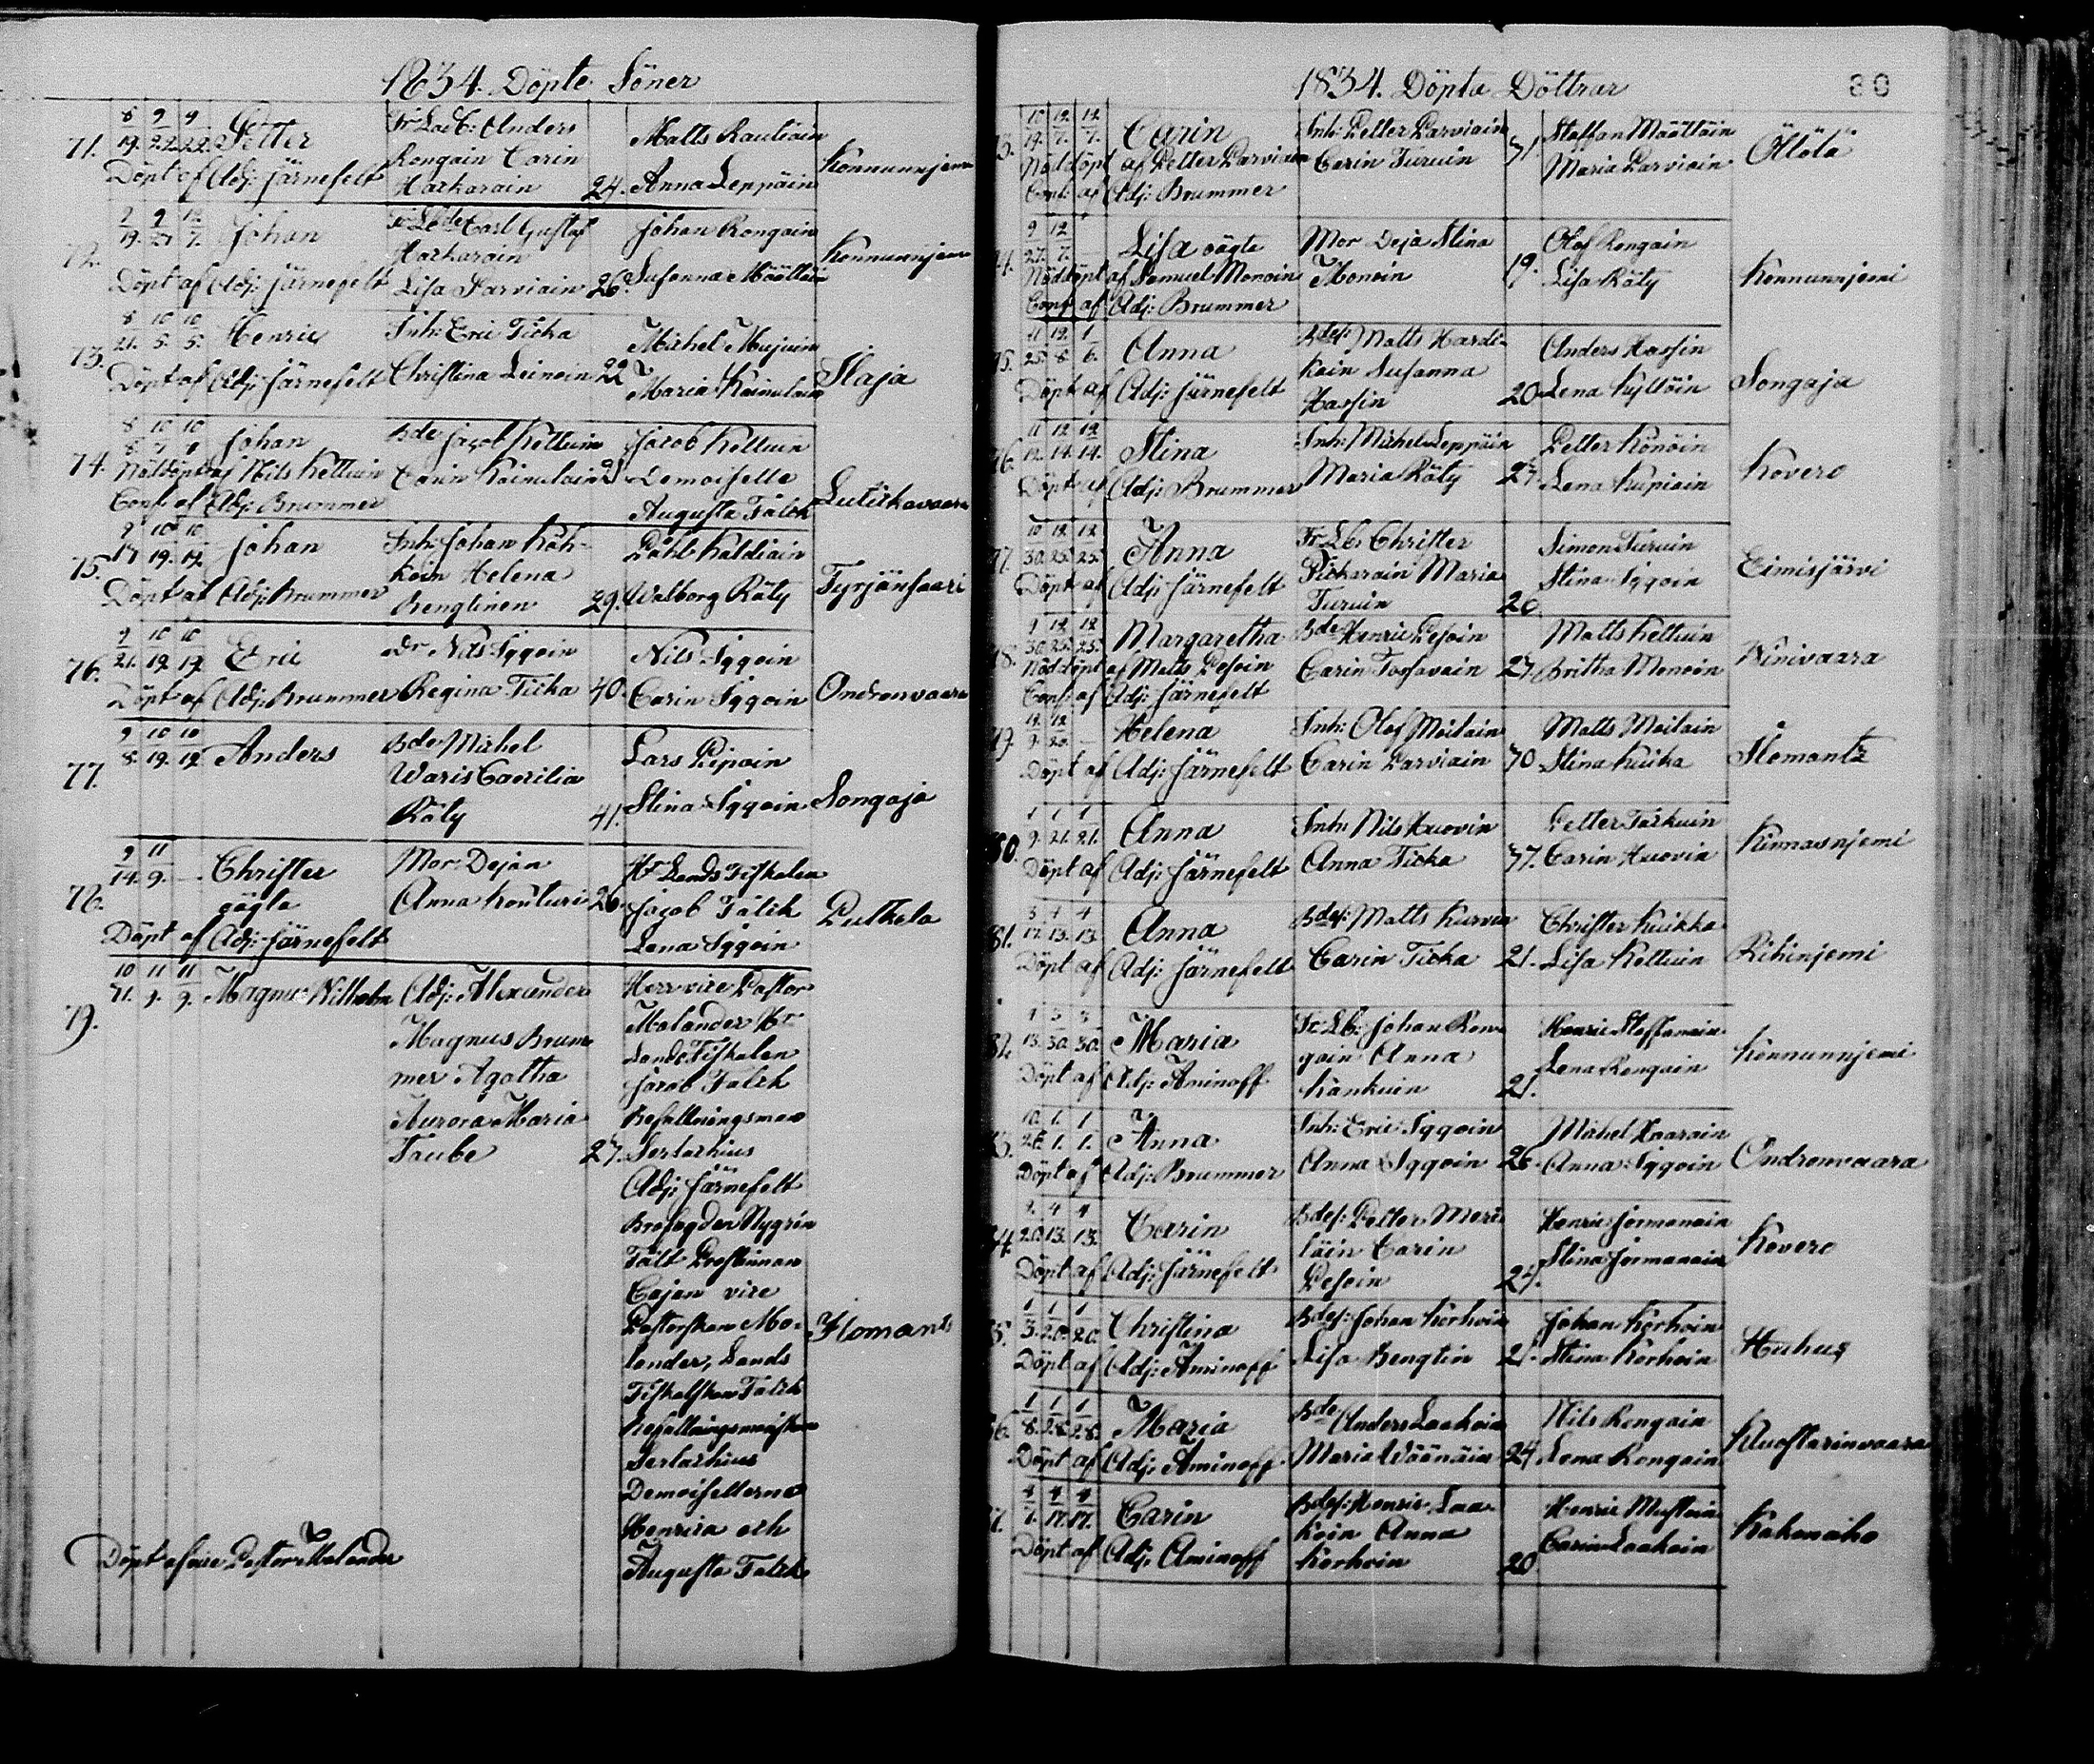 1834. Döpte Söner
71. 8/19. 9/22. 9/22. Petter
Döpt af Adj: Järnefelt
Fr Lds: Anders
Rongain Carin
Harkarain 24.
Matts Rautiain
Anna Leppäin
Konnunnjemi
72. 9/19. 9/27 12/7. Johan
Döpt af Adj: Järnefelt
Fr Lbde Carl Gustaf
Harkarain
Lisa Parviain 26.
Johan Rongain
Susanna Määttäin
Konnunnjemi
73. 8/21. 10/5. 10/5. Henric
Döpt af Adj: Järnefelt
Inh: Eric Ticka
Christina Leinoin 22
Michel Mujuin
Maria Kainulain
Ilaja
74. Johan
Nöddöpt af Nils Kettuin
Conf: af Adj: Brummer
Bde Jacob Kettuin
Carin Kainulain
Jacob Kettuin
Demoiselle
Augusta Falck
Lutikkavaara
75. 9/17 10/19. 10/19. Johan
Döpt af Adj: Brummer
Inh: Johan Kok-
koin Helena
Bengtinen 29.
Påhl Kaldiain
Walborg Räty
Tyrjänsaari
76. 9/21. 10/19. 10/19. Eric
Döpt af Adj: Brummer
Nils Iggoin
Regina Ticka 40.
Nils Iggoin
Carin Iggoin
Ondronvaara
77. 9/8. 10/19. 10/19. Anders
Bde Michel
Waris Caecilia
Räty 41.
Lars Piipoin
Stina Iggoin
Songaja
78. 9/14. 11/9. — Christer
oägta
Döpt af Adj: Järnefelt
Mor: Dejan
Anna Kontturi 26.
Hr Lands Fiskalen
Jacob Falck
Lena Iggoin
Putkela
79. 10/31. 11/9. 11/9. Magnus Wilhelm
Adj: Alexander
Magnus Brum-
mer Agatha
Aurora Maria
Taube 27.
Herr vice Pastor
Molander Hr
Lands Fiskalen
Jacob Falck
Befallningsman
Serlachius
Adj: Järnefelt
Brofogden Nygrén
Fält Prostinnan
Cajan vice
Pastorskan Mo-
lander, Lands
Fiskalskan Falck
Befallningsmanskan
Serlachius
Demoisellerna
Henrica och
Augusta Falck
Ilomants
Döpt af vice Pastor Molander
1834. Döpta Döttrar
80
10/19. 12/7. 12/7. Carin
Nöddöpt af Petter Parviain
Conf: af Adj: Brummer
Inh: Petter Parviain
Carin Turuin 31.
Staffan Määttäin
Maria Parviain
Öllölä
9/27. 12/7. Lisa oägta
Nöddöpt af Samuel Monoin
Conf af Adj: Brummer
Mor Deja Stina
Monoin 19.
Olof Rongain
Lisa Räty
Konnunnjemi
11/25. 12/8. 1/6. Anna
Döpt af Adj: Järnefelt
Bdes: Matts Hardi-
kain Susanna
Hassin 20
Anders Hassin
Lena Kyllöin
Songaja
11/12. 12/14. 12/14. Stina
Döpt af Adj: Brummer
Inh: Michel Leppäin
Maria Räty 27.
Petter Könöin
Lena Kupiain
Kovero
10/30. 12/25. 12/25. Anna
Döpt af Adj: Järnefelt
Fr Lb: Christer
Pickarain Maria
Turuin 20
Simon Turuin
Stina Iggoin
Eimisjärvi
9/30. 12/25. 12/25. Margaretha
Nöddöpt af Matts Pesoin
Conf: af Adj: Järnefelt
Bde Henric Pesoin
Carin Tossavain 27.
Matts Kettuin
Britha Monoin
Kinivaara
Helena
Döpt af Adj: Järnefelt
Inh: Olof Moilain
Carin Parviain 30
Matts Moilain
Stina Kuikka
Ilomants
80. 1/9. 1/21. 1/21. Anna
Döpt af Adj: Järnefelt
Inh: Nils Huovin
Anna Ticka 37.
Petter Tarkuin
Carin Huovin
Kinnasnjemi
81. 3/17. 4/13. 4/13. Anna
Döpt af Adj: Järnefelt
Bdes: Matts Kurvin
Carin Ticka 21.
Christer Kuikka
Lisa Kettuin
Riihinjemi
82. 3/30. 3/30. Maria
Döpt af Adj: Aminoff
Fr Lb: Johan Ron-
gain Anna
Kankuin 21.
Henric Staffanain
Lena Rongain
Konnunnjemi
10/26. 1/1. 1/1. Anna
Döpt af Adj: Brummer
Inh: Eric Iggoin
Anna Iggoin 26.
Michel Hoarain
Anna Iggoin
Ondronvaara
4/13. 4/13. Carin
Döpt af Adj: Järnefelt
Bdes: Petter Meri-
läin Carin
Pesoin 27.
Henric Jormanain
Stina Jormanain
Kovero
1/3. 1/20. 1/20. Christina
Döpt af Adj: Aminoff
Bdes: Johan Korhoin
Lisa Bengtin 21.
Johan Korhoin
Stina Korhoin
Huhus
1/8. 1/28. 1/28. Maria
Döpt af Adj: Aminoff
Bde Anders Laakoin
Maria Wäänäin 24.
Nils Rongain
Lena Rongain
Kluostarinvaara
4/7. 4/17. 4/17. Carin
Döpt af Adj: Aminoff
Bdes: Henric Laa-
koin Anna
Korhoin 20
Henric Mustoin
Carin Laakoin
Kakonaho